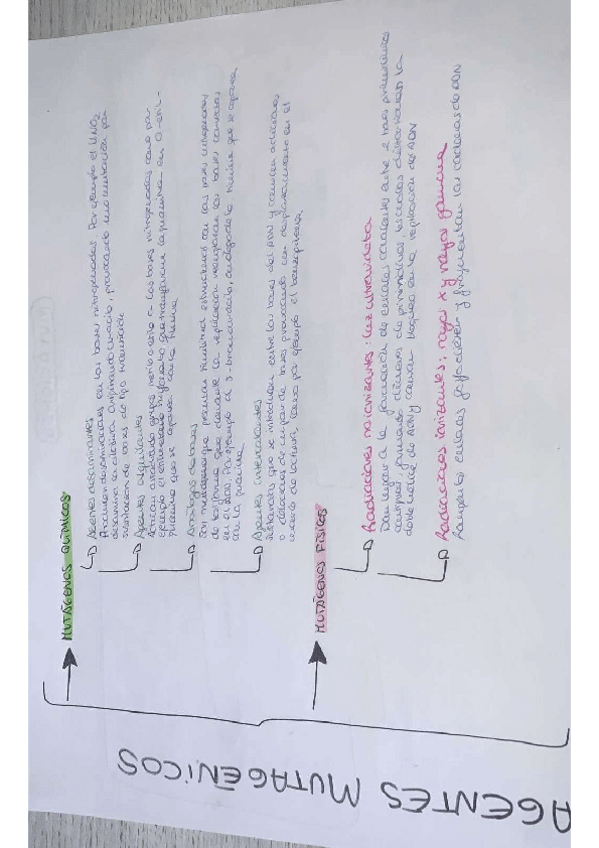 AGENTES MUTAGÉNICOS
MUTÁGENOS QUÍMICOS
Agentes desaminantes
Producen desaminaciones en las bases nitrogenadas. Por ejemplo el HNO2
desamina la citosina originando uracilo, provocando una mutación por
sustitución de bases de tipo transición
Agentes alquilantes
Actúan añadiendo grupos metilo o etilo a las bases nitrogenadas como por
ejemplo el etilmetano sulfonato que transforma la guanina en O-etil-
guanina que se aparea con la timina
Análogos de bases
Son moléculas que presentan similitud estructural con las bases nitrogenadas
de tal forma que durante la replicación reemplazan las bases correctas
en el ADN. Por ejemplo el 5-bromouracilo, análogo de la timina que se aparea
con la guanina
Agentes intercalantes
Sustancias que se introducen entre las bases del ADN y causan adiciones
o deleciones de un par de bases provocando un desplazamiento en el
marco de lectura, como por ejemplo el benzopireno
MUTÁGENOS FÍSICOS
Radiaciones no ionizantes: luz ultravioleta
Dan lugar a la formación de enlaces covalentes entre 2 bases pirimidínicas
contiguas formando dímeros de pirimidinas, los cuales distorsionan la
doble hélice de ADN y causan bloqueo en la replicación del ADN
Radiaciones ionizantes: rayos X y rayos gamma
Rompiendo enlaces fosfodiéster y fragmentan las cadenas de ADN